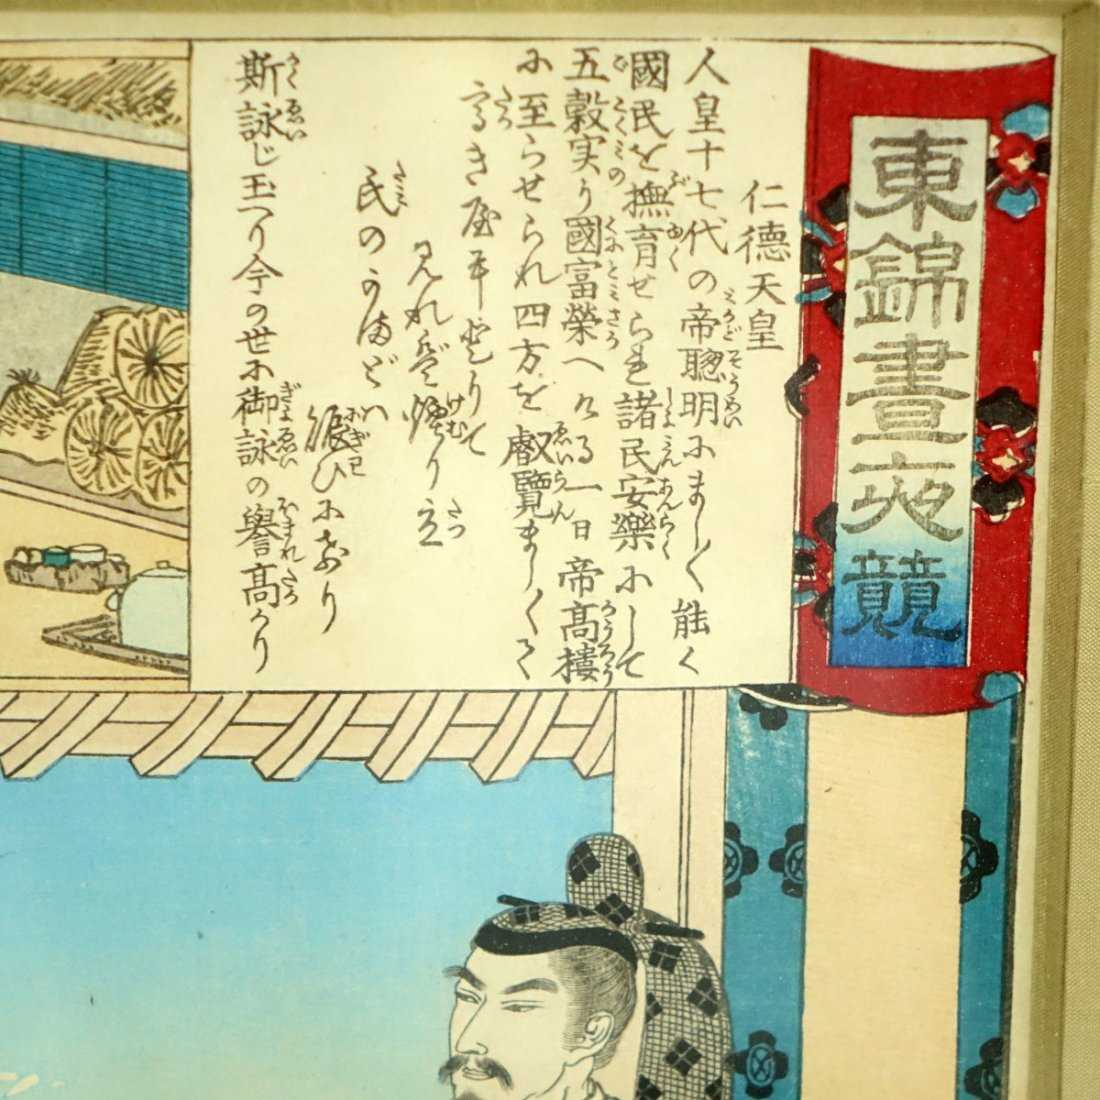 東錦昼夜競
仁德天皇
人皇十七代の帝聰明にまし〱能く
國民を撫育せられ諸民安樂にして
五穀実り國富榮へける一日帝高樓
に至らせられ四方を叡覽まし〱て
高き屋に登りて
見れば煙り立
民のかまどハ
賑ひにけり
斯詠じ玉へり今の世に御詠の譽高かり